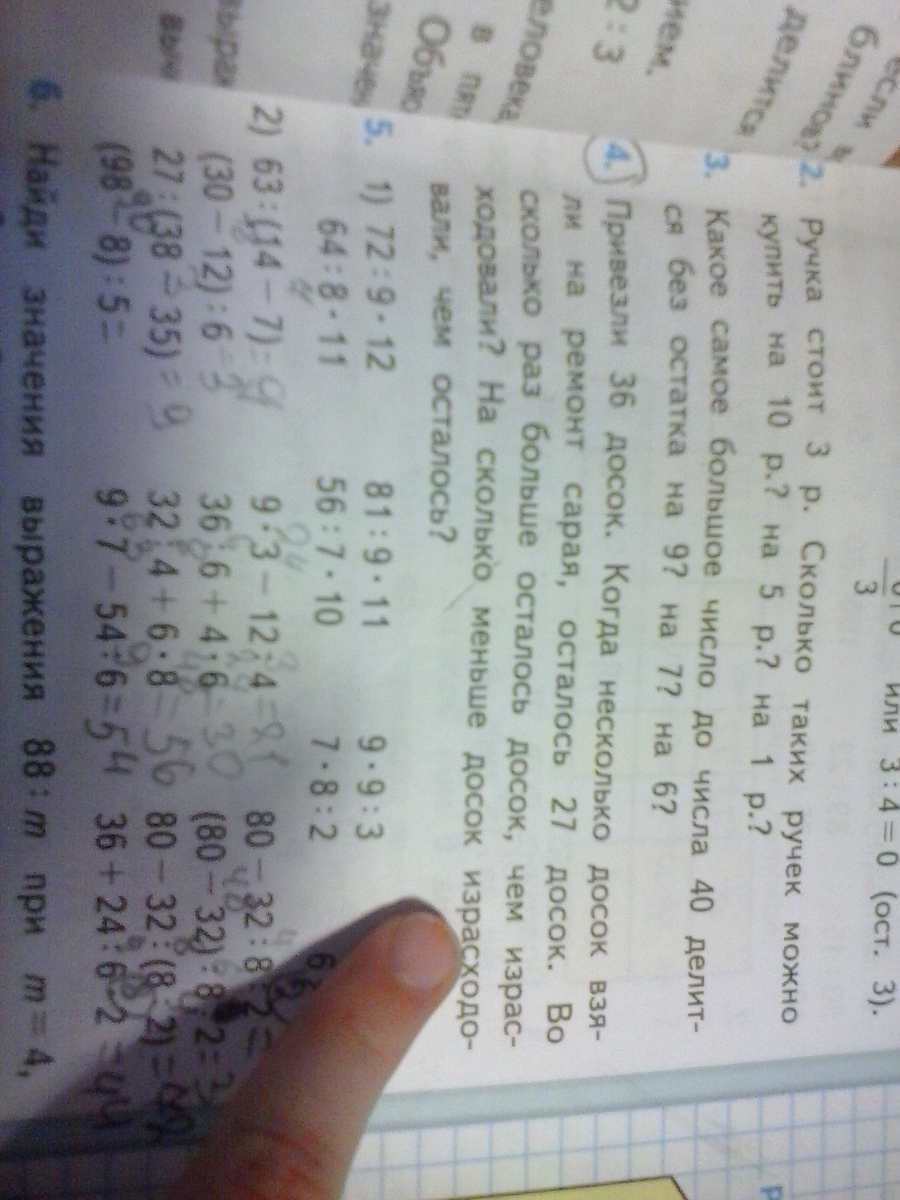 если
блинов?
делится
нием.
2 : 3
еловека
в пят
Объяс
значен
выраж
выч
или 3 : 4 = 0 (ост. 3).
3
2. Ручка стоит 3 р. Сколько таких ручек можно
купить на 10 р.? на 5 р.? на 1 р.?
3. Какое самое большое число до числа 40 делит-
ся без остатка на 9? на 7? на 6?
4. Привезли 36 досок. Когда несколько досок взя-
ли на ремонт сарая, осталось 27 досок. Во
сколько раз больше осталось досок, чем израс-
ходовали? На сколько меньше досок израсходо-
вали, чем осталось?
5. 1) 72 : 9 · 12 81 : 9 · 11 9 · 9 : 3
64 : 8 · 11 56 : 7 · 10 7 · 8 : 2
2) 63 : (14 − 7) = 9 9 · 3 − 12 : 4 = 80 − 32 : 8 · 2 =
(30 − 12) : 6 = 3 36 : 6 + 4 · 6 = 30 (80 − 32) : 8 · 2 =
27 : (38 − 35) = 9 32 : 4 + 6 · 8 = 56 80 − 32 : (8 · 2) =
(98 − 8) : 5 = 9 · 7 − 54 : 6 = 54 36 + 24 : 6 · 2 = 44
6. Найди значения выражения 88 : m при m = 4,